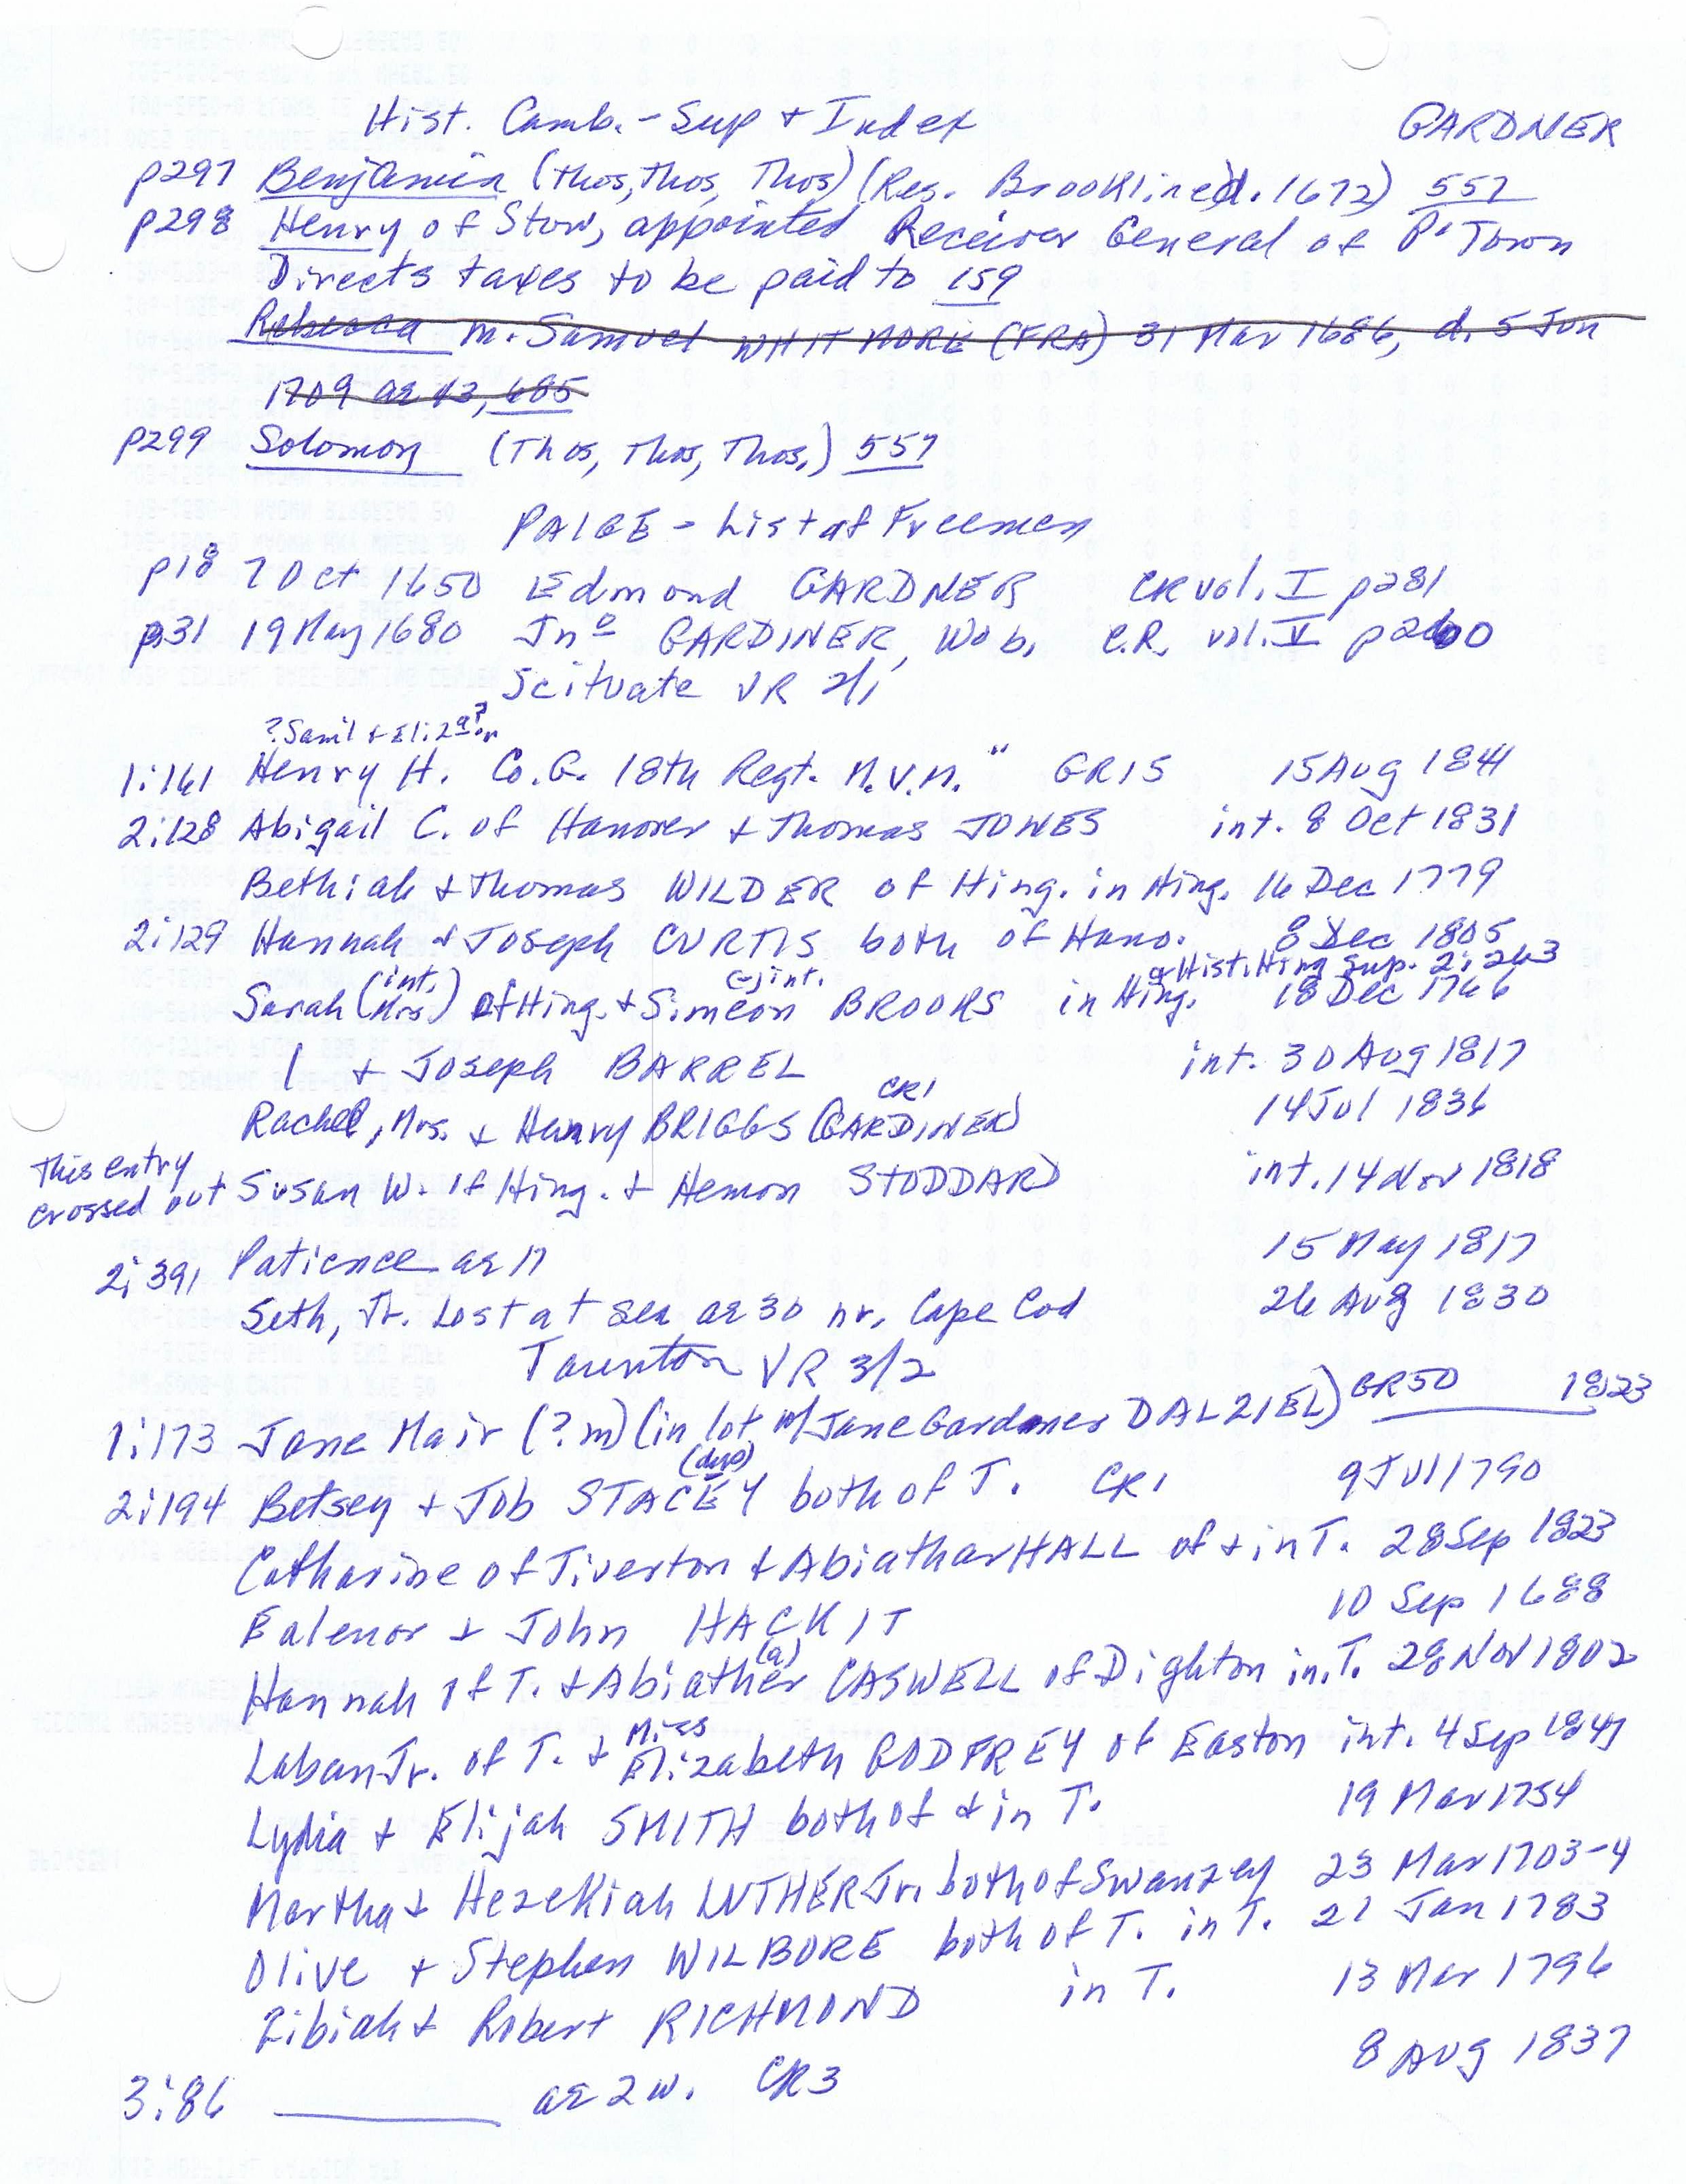 Hist. Camb. - Sup + Index GARDNER
p297 Benjamin (Thos, Thos, Thos) (Res. Brookline d. 1672) 557
p298 Henry of Stow, appointed Receiver General of P' Town
Directs taxes to be paid to 159
Rebecca m. Samuel WHITMORE (FRA) 31 Mar 1686, d. 5 Jun
1709 ae 43, 685
p299 Solomon (Thos, Thos, Thos,) 557
PAIGE - List of Freemen
p18 7 Oct 1650 Edmond GARDNER CR vol. I p281
p31 19 May 1680 Jno GARDINER, Wob. C.R. vol. V p260
Scituate VR 2/1
? Saml + Eliza ?
1:161 Henry H. Co. G. 18th Regt. M.V.M." GR15 15 Aug 1841
2:128 Abigail C. of Hanover + Thomas JONES int. 8 Oct 1831
Bethiah + Thomas WILDER of Hing. in Hing. 16 Dec 1779
2:129 Hannah + Joseph CURTIS both of Hano. 8 Dec 1805
(int. int. + Hist. Hing Sup. 2:263
Sarah (Mrs) of Hing. + Simeon BROOKS in Hing. 18 Dec 1766
| + Joseph BARREL int. 30 Aug 1817
CR1
Rachel, Mrs. + Henry BRIGGS (GARDINER) 14 Jul 1836
This entry
crossed out Susan W. of Hing. + Hemon STODDARD int. 14 Nov 1818
2:391 Patience ae 17 15 May 1817
Seth, Jr. Lost at sea ae 30 nr. Cape Cod 26 Aug 1830
Taunton VR 3/2
1:173 Jane Mair (?m) (in lot w/ Jane Gardner DALZIEL) GR50 1823
(dup)
2:194 Betsey + Job STACEY both of T. CR1 9 Jul 1790
Catharine of Tiverton + Abiathar HALL of + in T. 28 Sep 1823
Ealenor + John HACKIT 10 Sep 1688
(a)
Hannah of T. + Abiather CASWELL of Dighton in T. 28 Nov 1802
Miss
Laban Jr. of T. + Elizabeth GODFREY of Easton int. 4 Sep 1847
Lydia + Elijah SMITH both of + in T. 19 Mar 1754
Martha + Hezekiah LUTHER Jr. both of Swanzey 23 Mar 1703-4
Olive + Stephen WILBORE both of T. in T. 21 Jan 1783
Zibiah + Robert RICHMOND in T. 13 Mar 1796
3:86 ae 2 w. CR3 8 Aug 1837